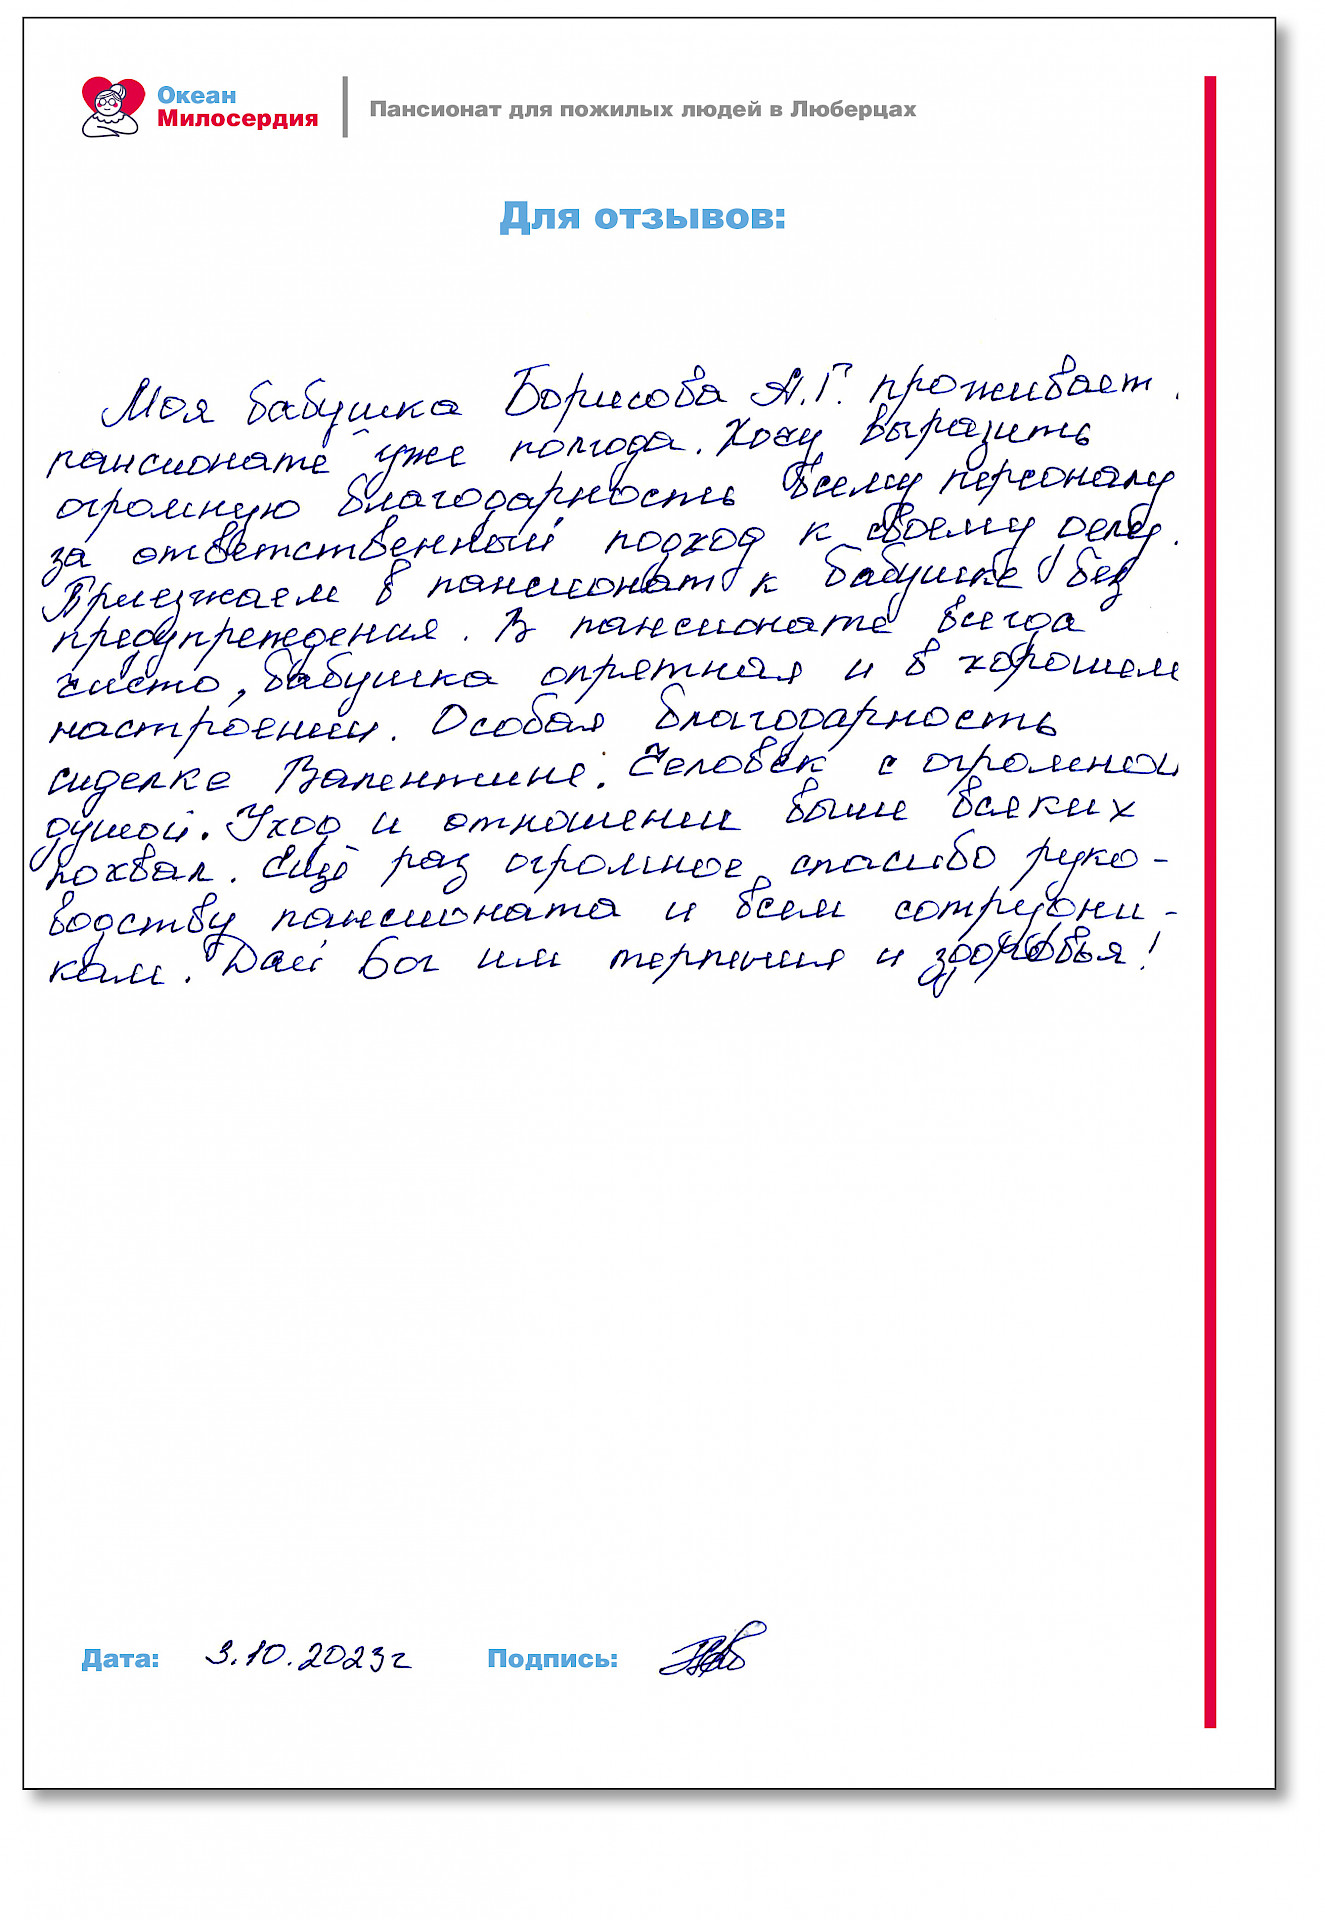 Океан
Милосердия
Пансионат для пожилых людей в Люберцах
Для отзывов:
Моя бабушка Борисова А.Г. проживает
пансионате уже полгода. Хочу выразить
огромную благодарность всему персоналу
за ответственный подход к своему делу.
Приезжаем в пансионат к бабушке без
предупреждения. В пансионате всегда
чисто, бабушка опрятная и в хорошем
настроении. Особая благодарность
сиделке Валентине. Человек с огромной
душой. Уход и отношении выше всяких
похвал. Ещё раз огромное спасибо руко-
водству пансионата и всем сотрудни-
кам. Дай Бог им терпения и здоровья!
Дата: 3.10.2023г Подпись: